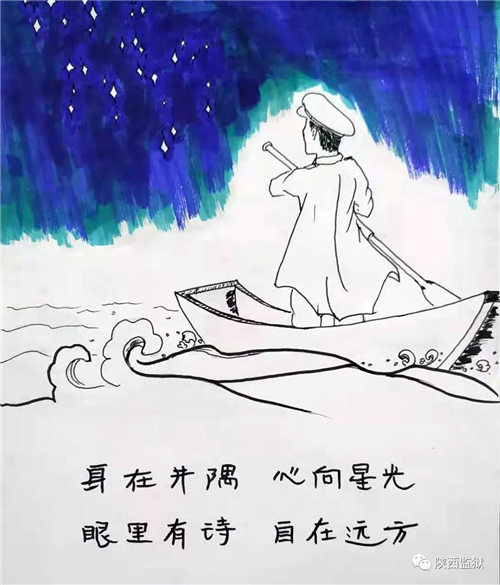 身在井隅 心向星光
眼里有诗 自在远方
陕西监狱